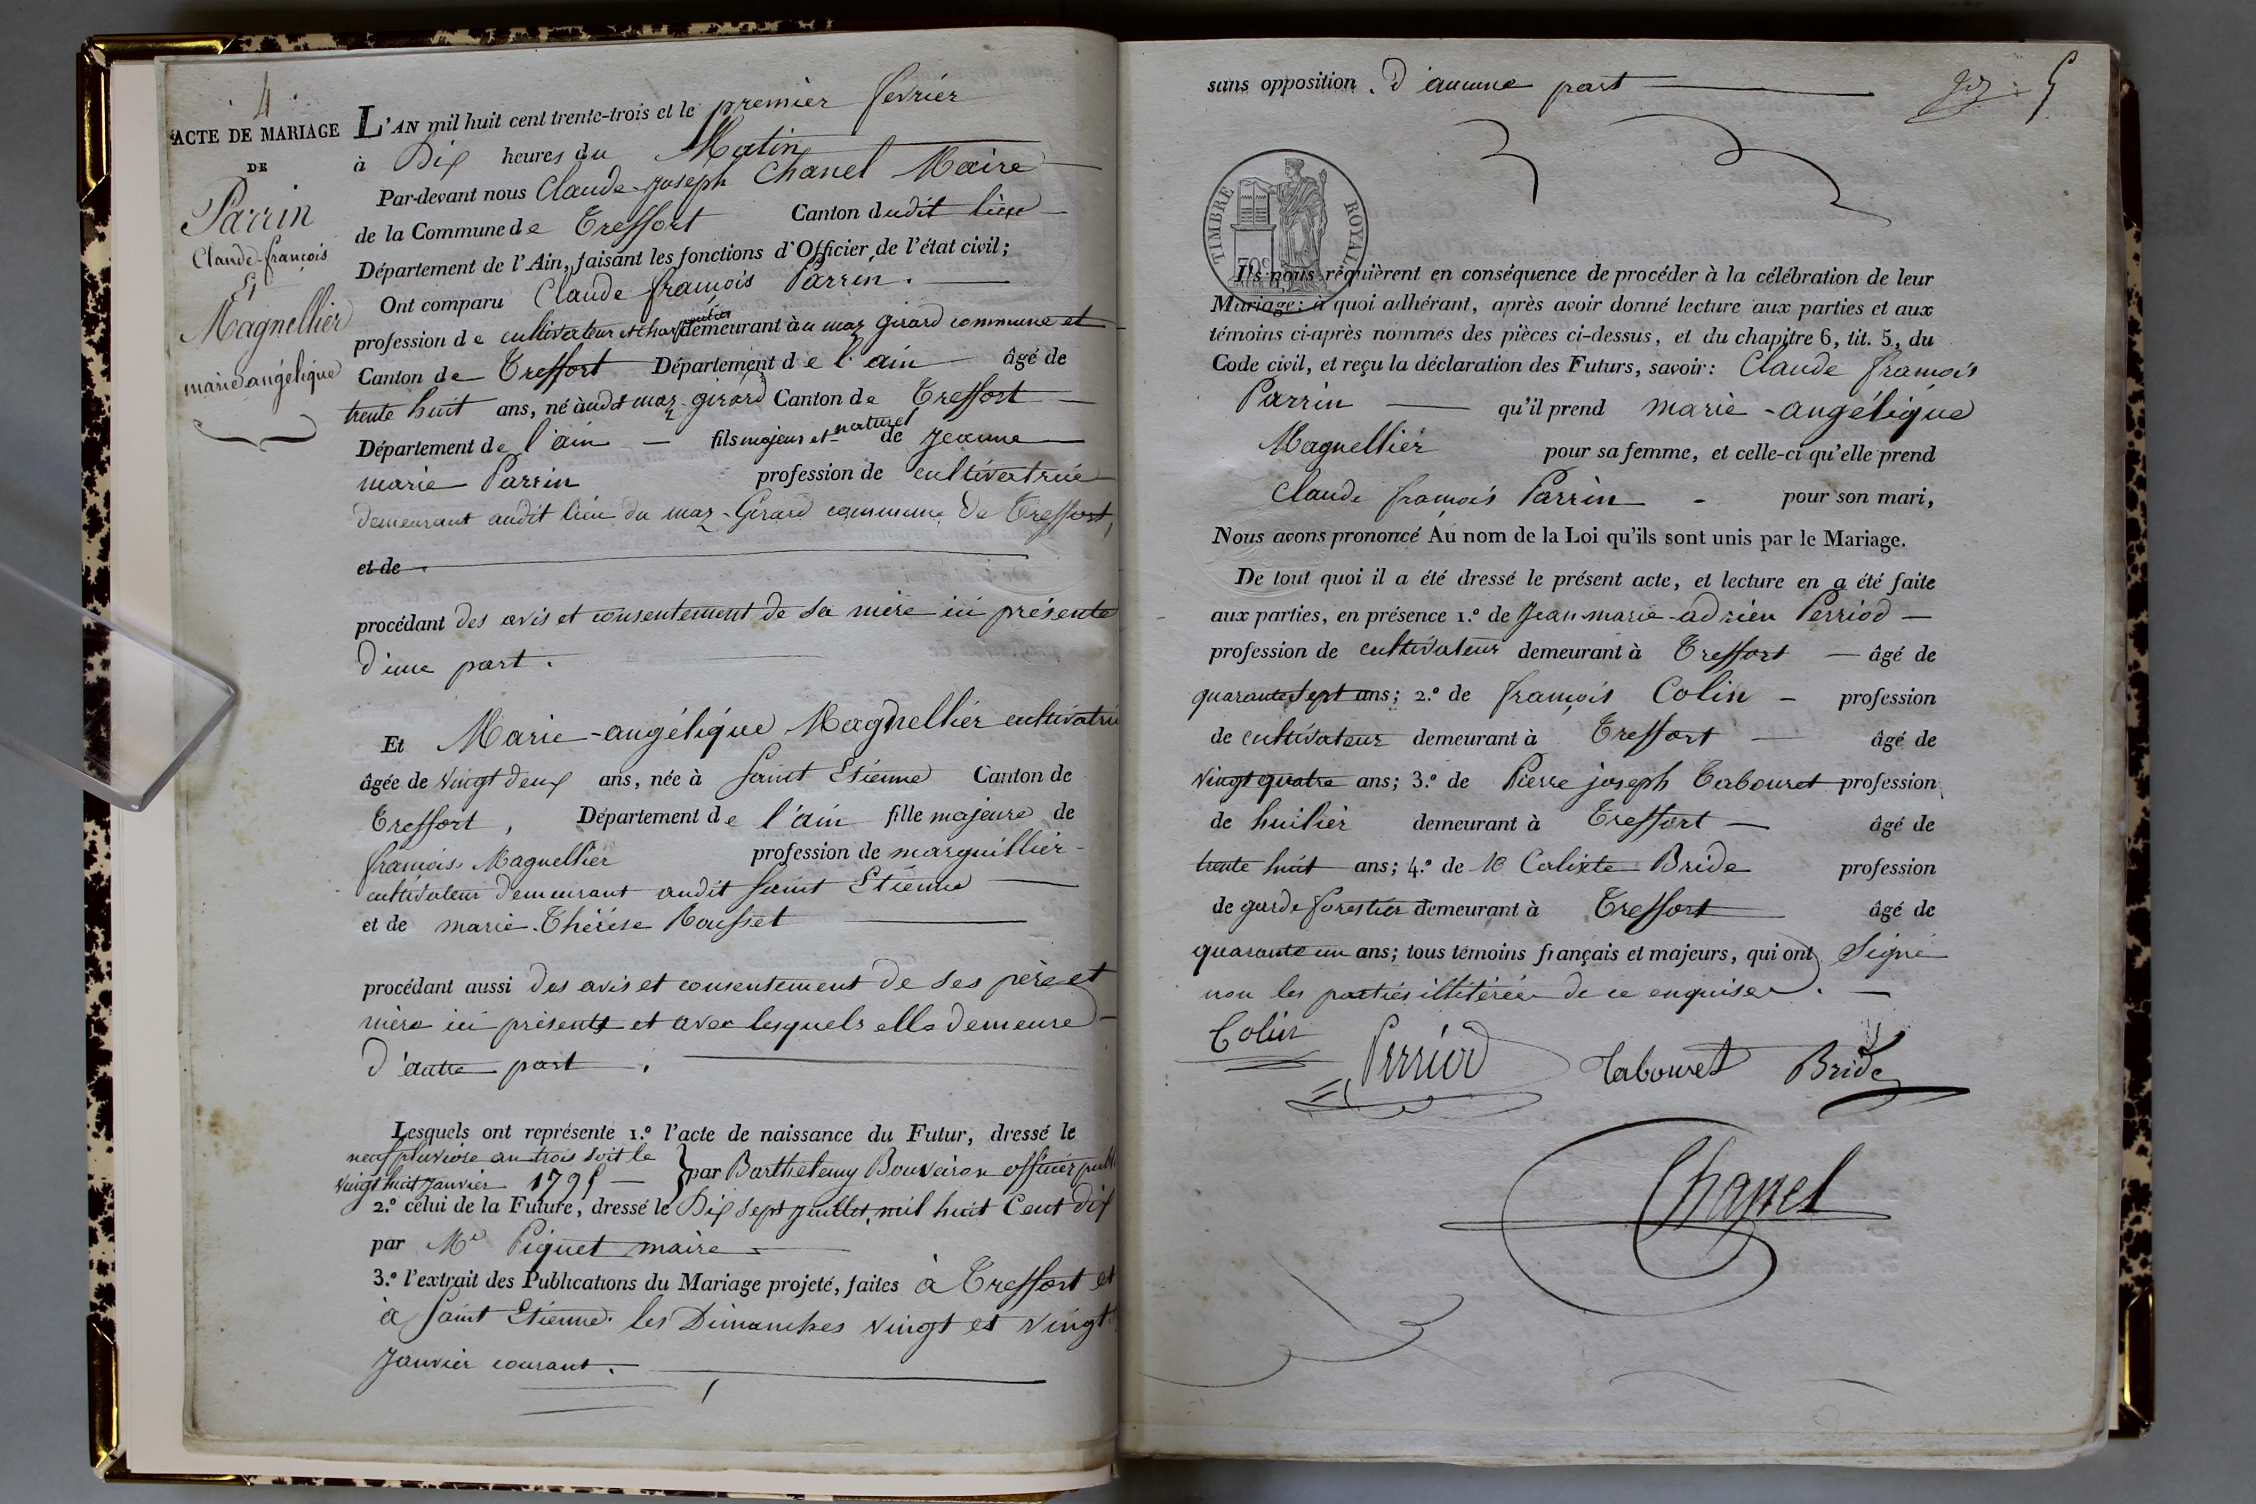 4
ACTE DE MARIAGE
DE
Parrin
Claude-françois
Et
Magnellier
marie angélique
L'AN mil huit cent trente-trois et le premier fevrier
à Dix heures du Matin
Par-devant nous Claude-Joseph Chanel Maire
de la Commune de Treffort Canton dudit lieu
Département de l'Ain, faisant les fonctions d'Officier de l'état civil;
Ont comparu Claude françois Parrin.
profession de cultivateur et charpentier demeurant à au maz Girard commune et
Canton de Treffort Département de l'ain âgé de
trente huit ans, né à udt maz girard Canton de Treffort
Département de l'ain fils majeur et naturel de Jeanne
marie Parrin profession de cultivatrice
demeurant audit lieu du maz-Girard commune de Treffort,
et de
procédant des avis et consentement de sa mère ici présente
d'une part.
Et Marie-angélique Magnellier cultivatrice
âgée de vingt deux ans, née à Saint Etienne Canton de
Treffort, Département de l'ain fille majeure de
françois Magnellier profession de marguillier
cultivateur demeurant audit Saint Etienne
et de marie-Thérése Rousset
procédant aussi des avis et consentement de ses père et
mère ici présents et avec lesquels elle demeure
d'autre part.
Lesquels ont représenté 1.º l'acte de naissance du Futur, dressé le
neuf pluviose an trois soit le
vingt huit janvier 1795 par Barthelemy Bouveiron officier publ
2.º celui de la Future, dressé le Dix sept juillet, mil huit Cent dix
par Mr Piquet maire
3.º l'extrait des Publications du Mariage projeté, faites à Treffort et
à Saint Etienne. les Dimanches vingt et vingt
Janvier courant.
sans opposition. d'aucune part
5
TIMBRE ROYAL
70c
Ils nous requièrent en conséquence de procéder à la célébration de leur
Mariage: à quoi adhérant, après avoir donné lecture aux parties et aux
témoins ci-après nommés des pièces ci-dessus, et du chapitre 6, tit. 5, du
Code civil, et reçu la déclaration des Futurs, savoir: Claude françois
Parrin qu'il prend marie-angélique
Magnellier pour sa femme, et celle-ci qu'elle prend
Claude françois Parrin pour son mari,
Nous avons prononcé Au nom de la Loi qu'ils sont unis par le Mariage.
De tout quoi il a été dressé le présent acte, et lecture en a été faite
aux parties, en présence 1.º de Jean-marie-adrien Perriod
profession de cultivateur demeurant à Treffort âgé de
quarante sept ans; 2.º de françois Colin profession
de cultivateur demeurant à Treffort âgé de
vingt quatre ans; 3.º de Pierre joseph Tabouret profession
de huilier demeurant à Treffort âgé de
trente huit ans; 4.º de Calixte Bride profession
de garde forestier demeurant à Treffort âgé de
quarante un ans; tous témoins français et majeurs, qui ont Signé
non les parties illitérées de ce enquises.
Colin Perriod Tabouret Bride
Chanel